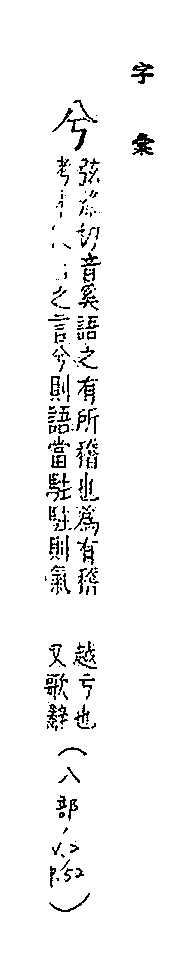 字彙
兮
弦切音奚語之有所稽也爲有稽
考之言兮則語當駐駐則氣
越亏也
又歌辭
(八部, V.2 P.52)